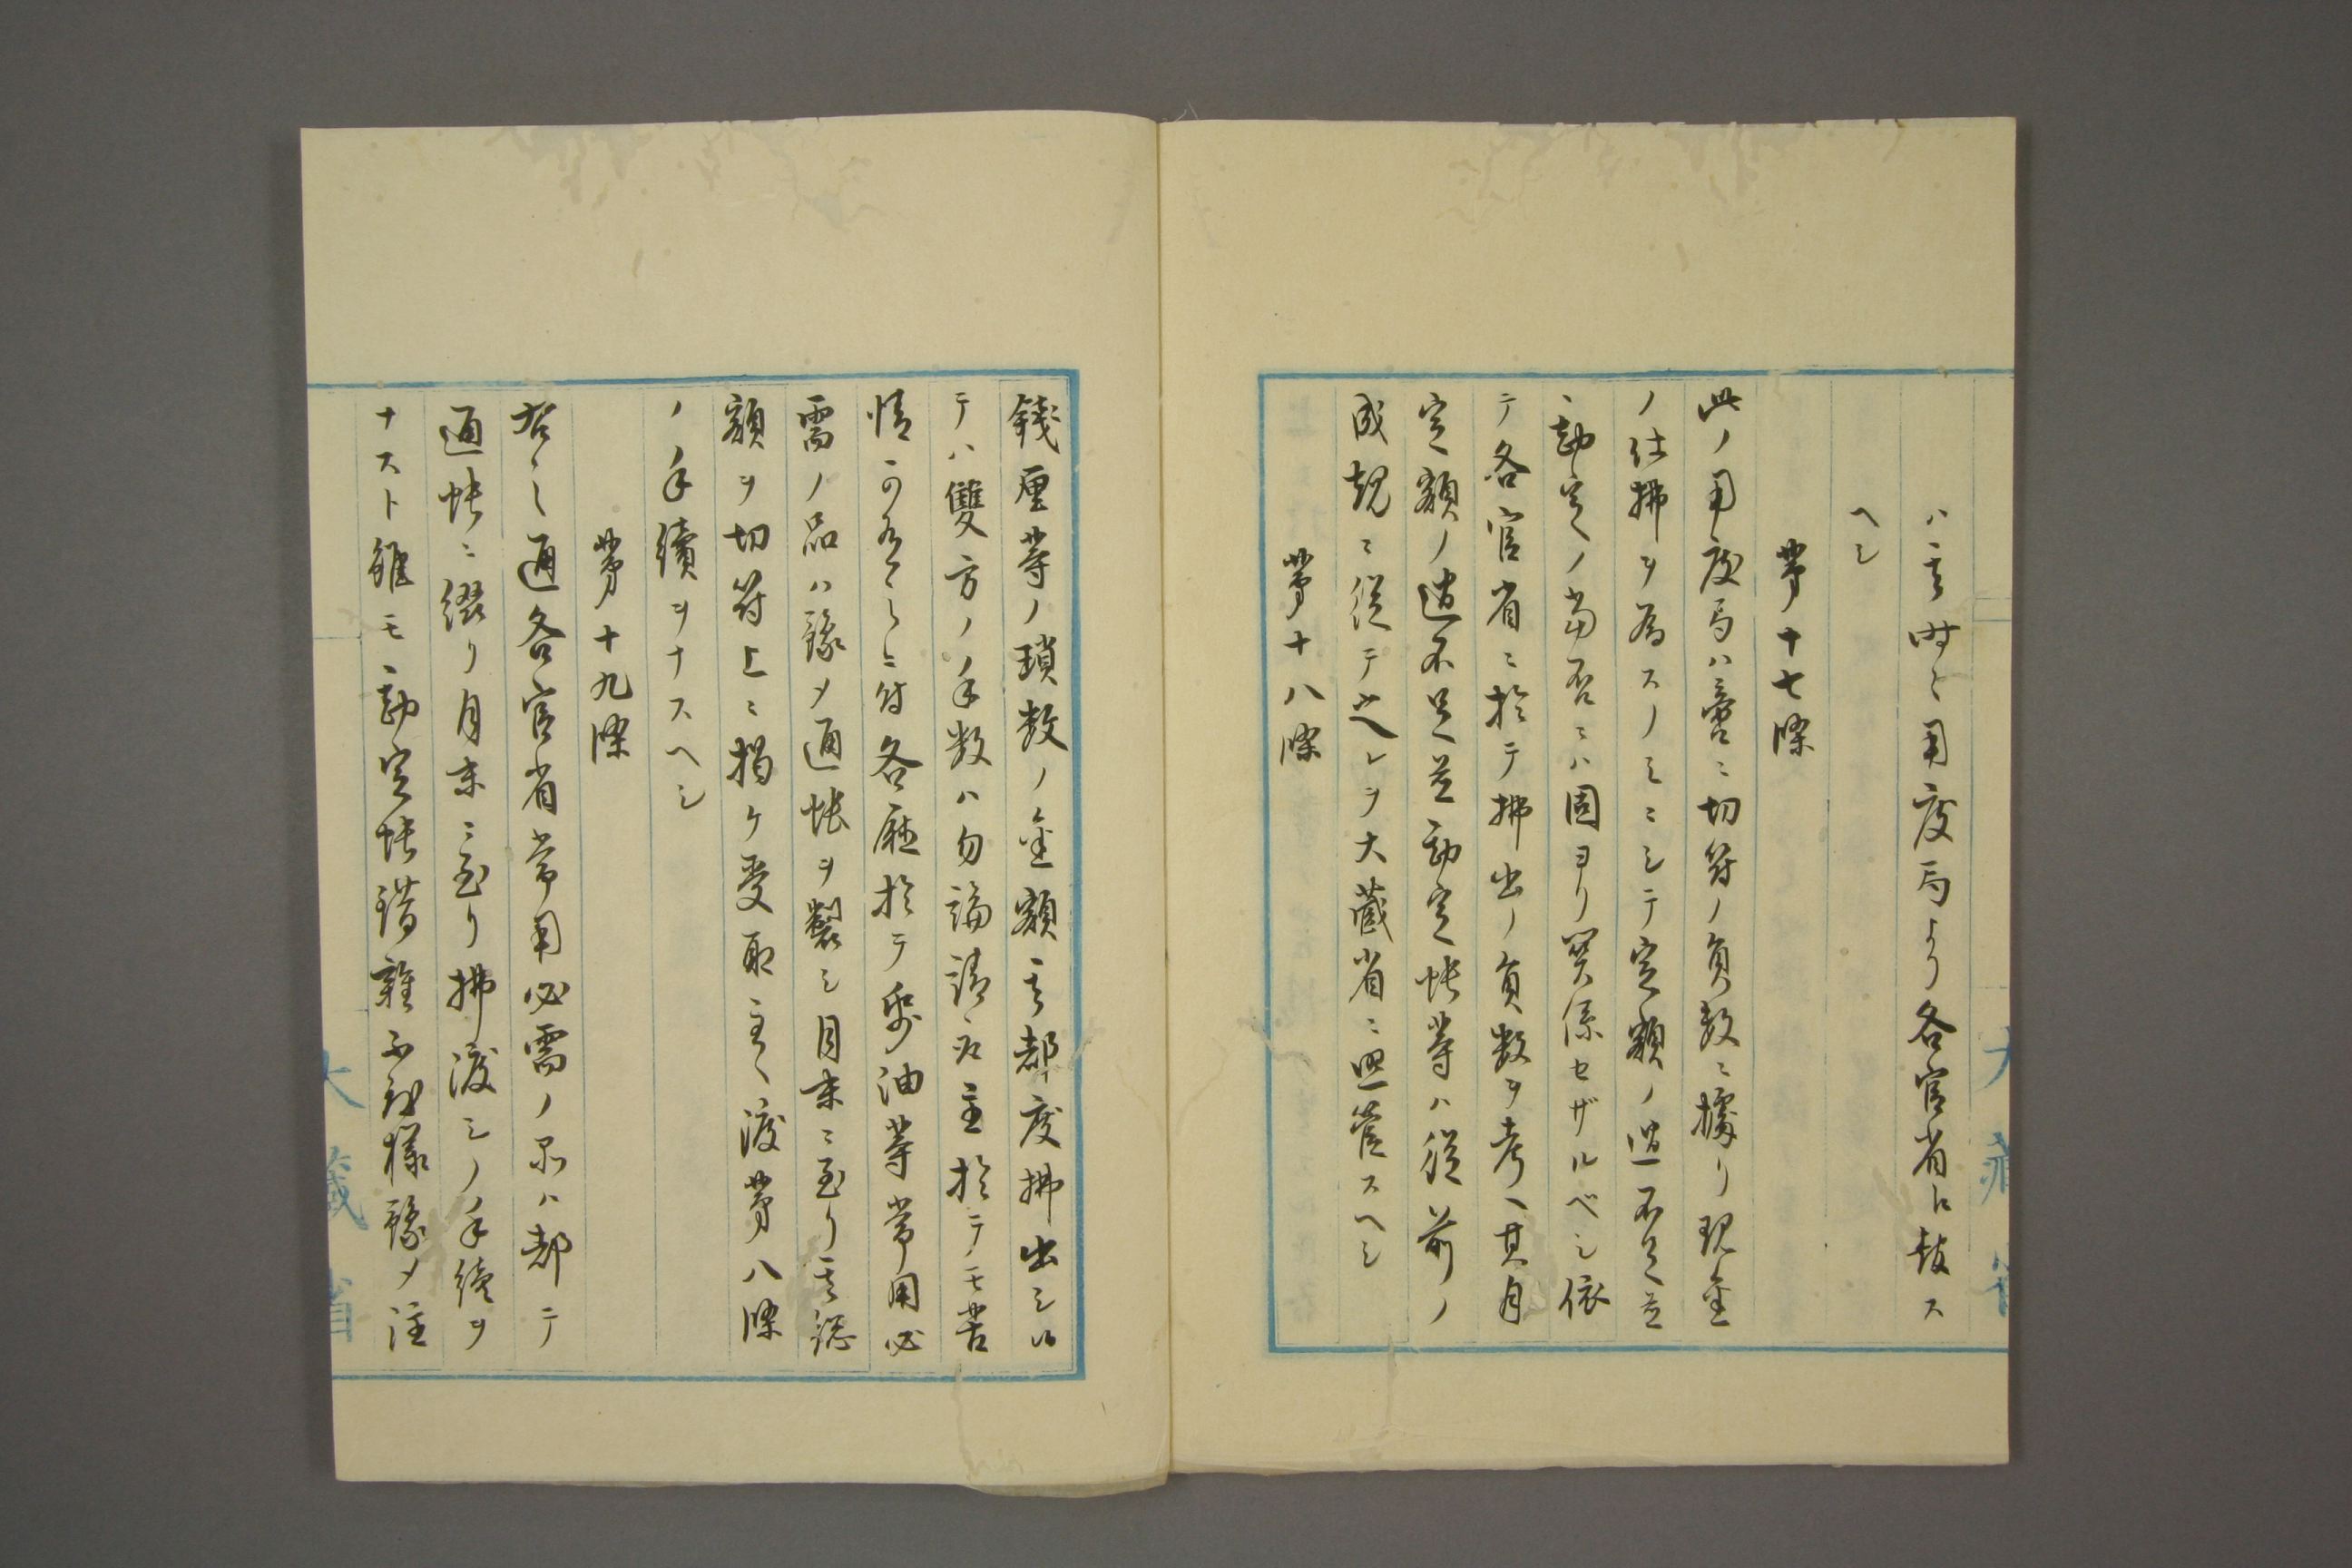 ハ其時々用度局より各官省ヘ報ス
ヘシ
第十七條
此ノ用度局ハ啻ニ切符ノ員数ニ據リ現金
ノ仕拂ヲ為スノミニシテ定額ノ過不足並
ニ勘定ノ當否ニハ固ヨリ関係セザルベシ依
テ各官省ニ於テ拂出ノ員数ヲ考ヘ其月
定額ノ過不足並勘定帳等ハ従前ノ
成規ニ従テ之レヲ大藏省ニ照管スヘシ
第十八條
錢厘等ノ瑣数ノ金額其都度拂出シ
テハ雙方ノ手数ハ勿論請取主於テモ苦
情可有之ニ付各廳於テ紙油等常用必
需ノ品ハ豫メ通帳ヲ製シ月末ニ至リ其総
額ヲ切符上ニ掲ケ受取主ヘ渡第八條
ノ手續ヲナスヘシ
第十九條
右之通各官省常用必需ノ品ハ都テ
通帳ニ綴リ月末ニ至リ拂渡シノ手續ヲ
ナスト雖モ勘定帳錯雜不致様豫メ注
大藏省